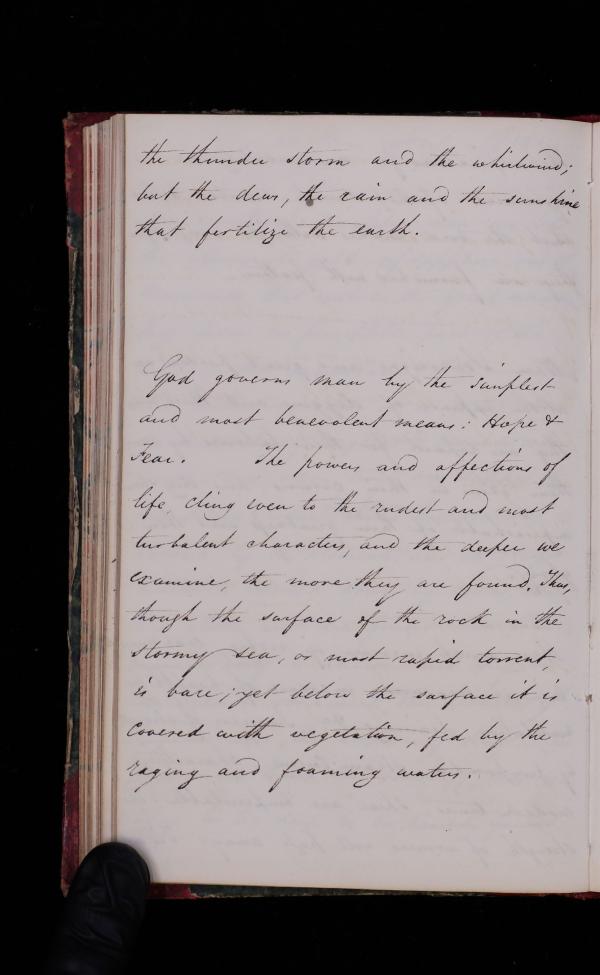 the thunder storm and the whirlwind;
but the dew, the rain and the sunshine
that fertilize the earth.
God governs man by the simplest
and most benevolent means: Hope &
Fear. The powers and affections of
life, cling even to the rudest and most
turbulent characters, and the deeper we
examine, the more they are found. Thus,
though the surface of the rock in the
stormy sea, or most rapid torrent,
is bare; yet below the surface it is
covered with vegetation, fed by the
raging and foaming waters.